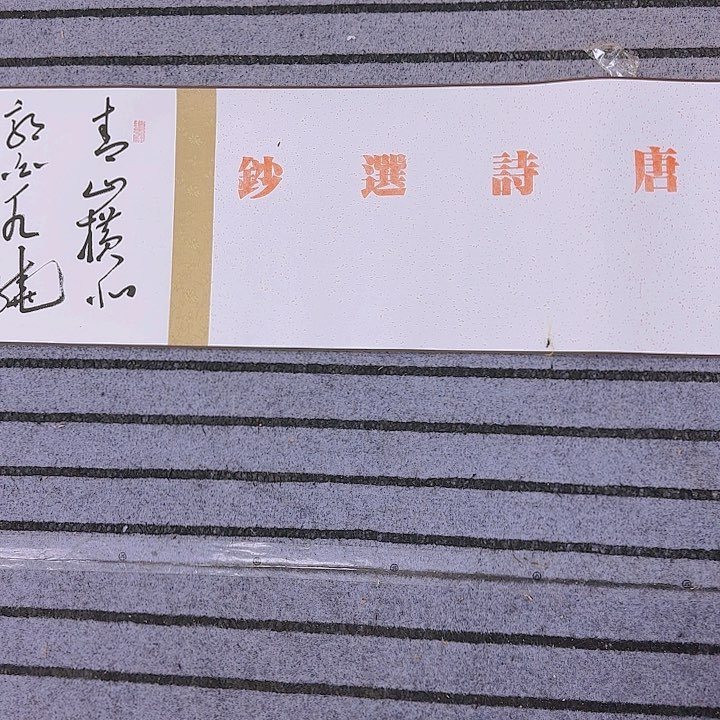 唐詩選鈔
青山橫北
郭白水遶